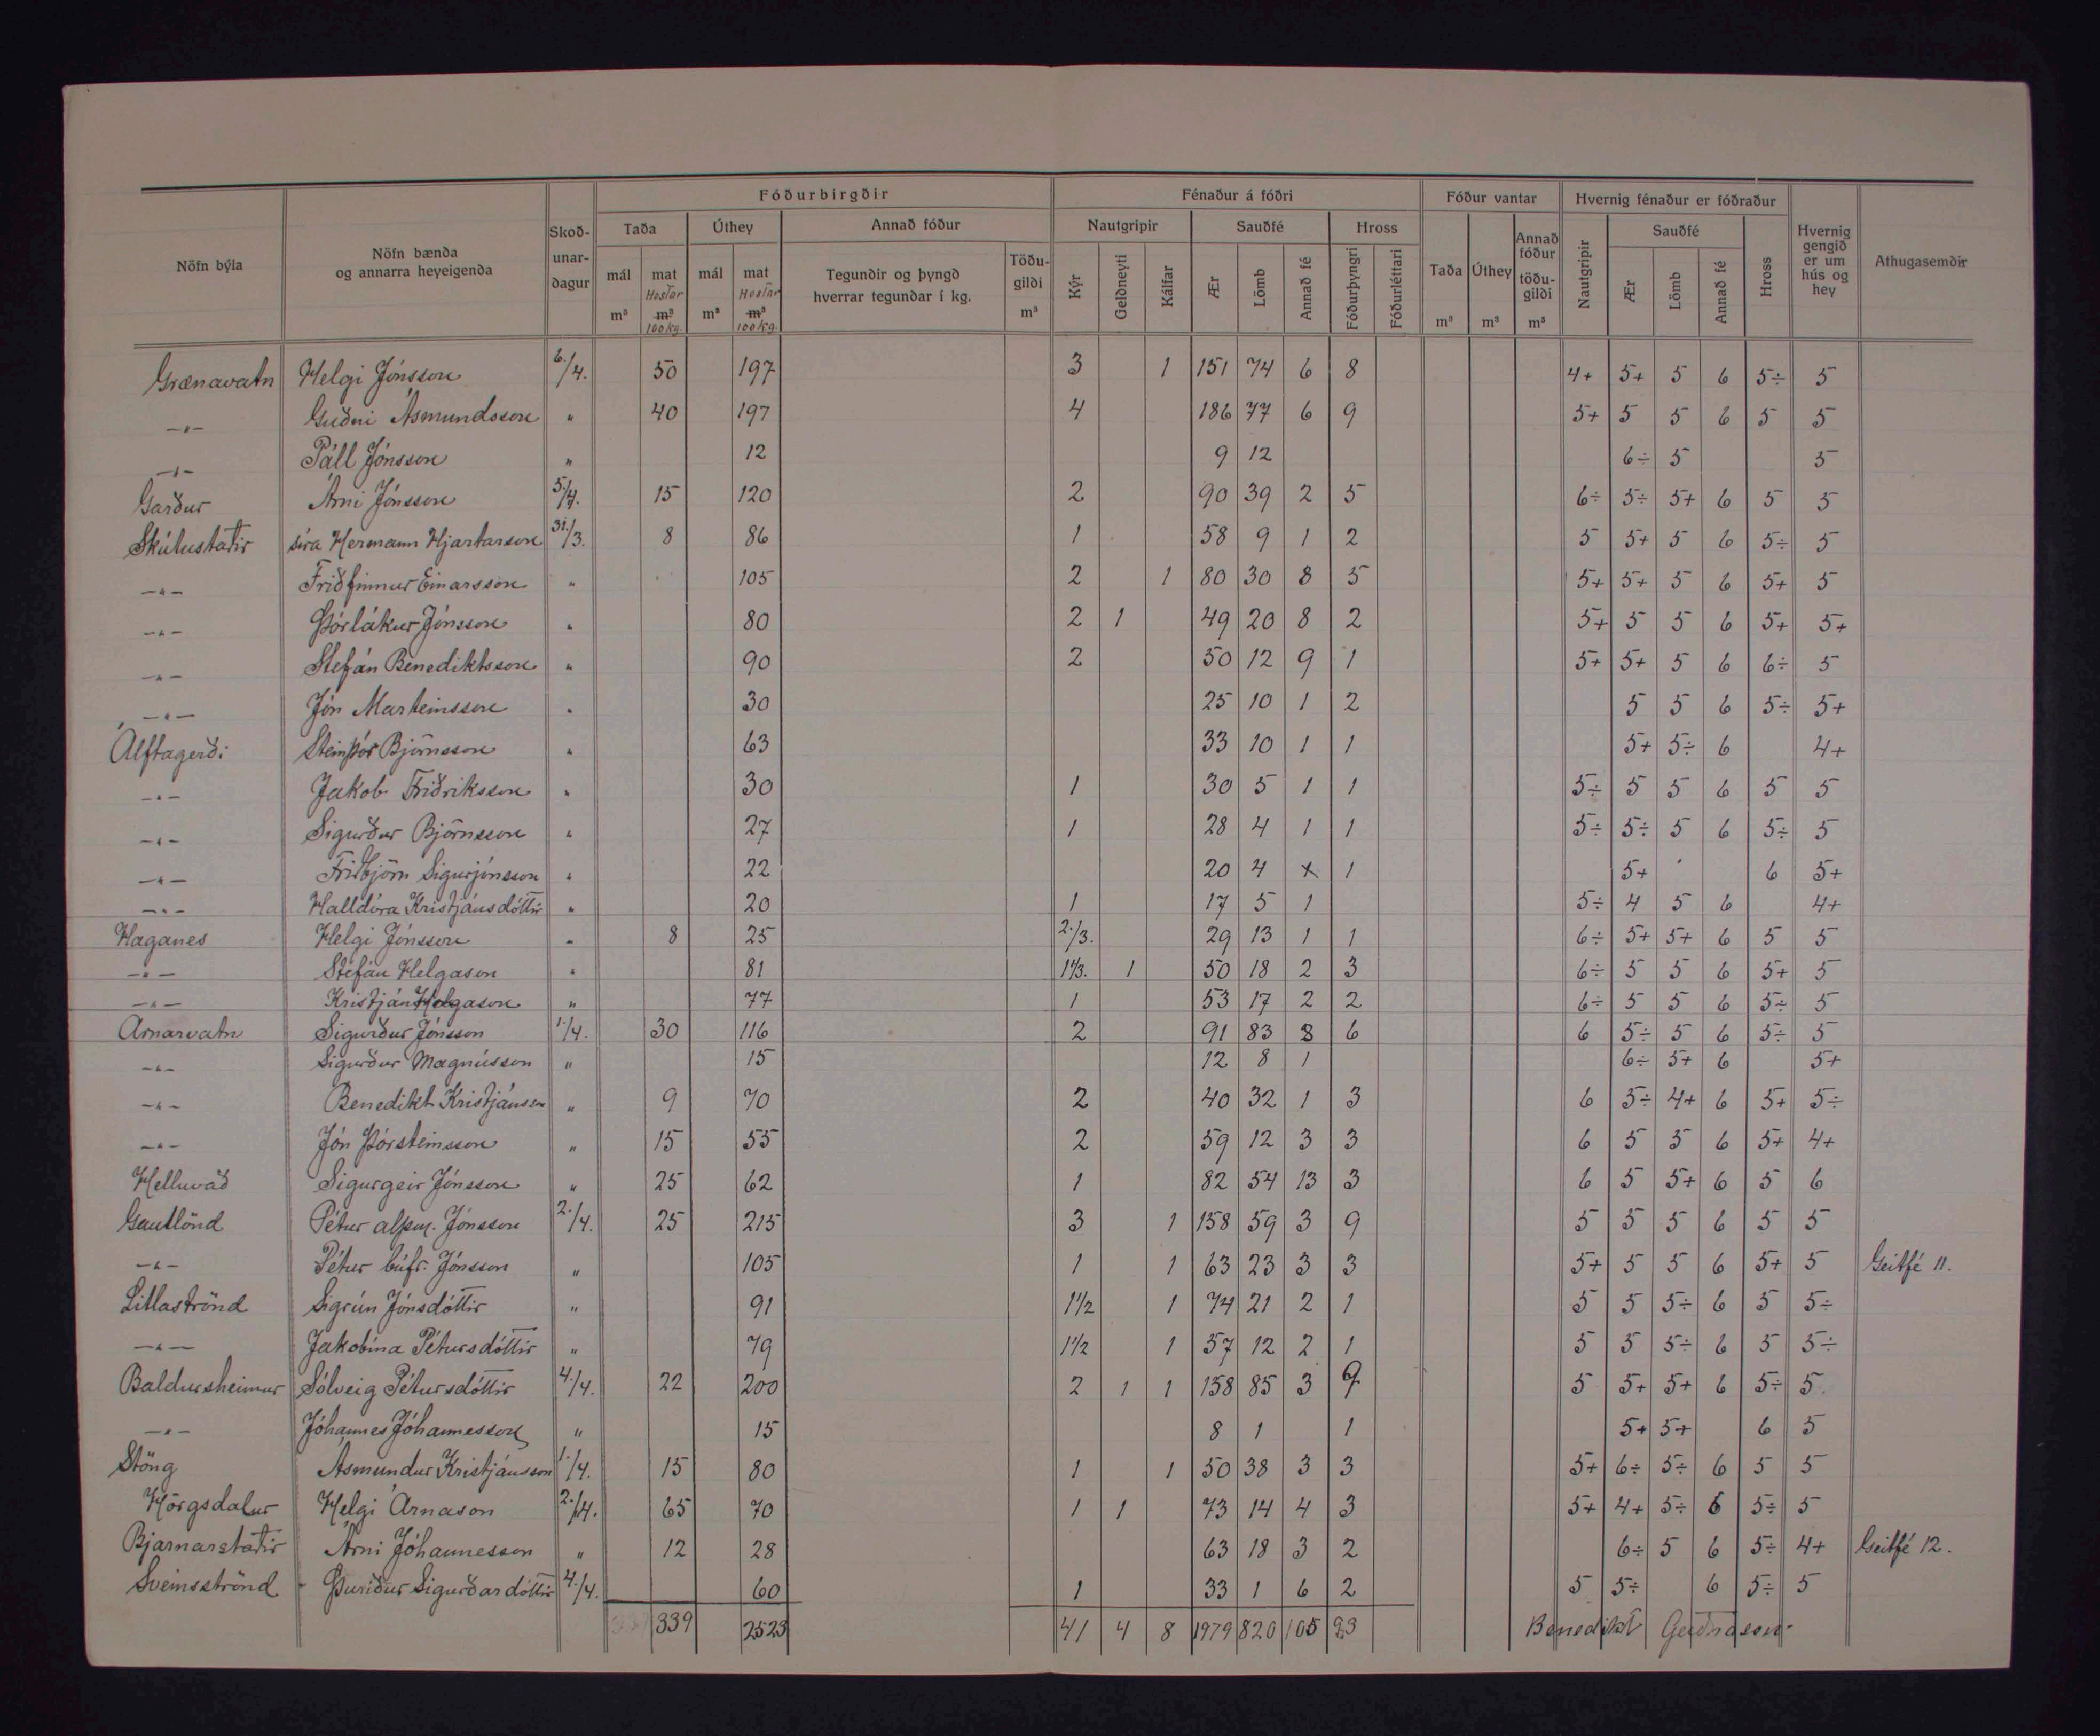 Fóðurbirgðir Fénaður á fóðri Fóður vantar Hvernig fénaður er fóðraður
Nöfn býla Nöfn bænda og annarra heyeigenda Skoð-unar-dagur Taða Úthey Annað fóður Nautgripir Sauðfé Hross Taða Úthey Annað fóður töðu-gildi Nautgripir Sauðfé Hross Hvernig gengið er um hús og hey Athugasemdir
mál mat mál mat Tegundir og þyngd hverrar tegundar í kg. Töðu-gildi Kýr Geldneyti Kálfar Ær Lömb Annað fé Fóðurþyngri Fóðurléttari Ær Lömb Annað fé
Hestar Hestar
m³ m³ m³ m³ m³ m³ m³ m³
100 kg. 100 kg.
Grænavatn Helgi Jónsson 6./4. 50 197 3 1 151 74 6 8 4+ 5+ 5 6 5÷ 5
—"— Guðni Ásmundsson " 40 197 4 186 77 6 9 5+ 5 5 6 5 5
—"— Páll Jónsson " 12 9 12 6÷ 5 5
Garður Árni Jónsson 5./4. 15 120 2 90 39 2 5 6÷ 5÷ 5+ 6 5 5
Skútustaðir síra Hermann Hjartarson 31./3. 8 86 1 58 9 1 2 5 5+ 5 6 5÷ 5
—"— Friðfinnur Einarsson " 105 2 1 80 30 8 5 5+ 5+ 5 6 5+ 5
—"— Þórlákur Jónsson " 80 2 1 49 20 8 2 5+ 5 5 6 5+ 5+
—"— Stefán Benediktsson " 90 2 50 12 9 1 5+ 5+ 5 6 6÷ 5
—"— Jón Marteinsson " 30 25 10 1 2 5 5 6 5÷ 5+
Álftagerði Steinþór Björnsson " 63 33 10 1 1 5+ 5÷ 6 4+
—"— Jakob Friðriksson " 30 1 30 5 1 1 5÷ 5 5 6 5 5
—"— Sigurður Björnsson " 27 1 28 4 1 1 5÷ 5÷ 5 6 5÷ 5
—"— Friðbjörn Sigurjónsson " 22 20 4 x 1 5+ 6 5+
—"— Halldóra Kristjánsdóttir " 20 1 17 5 1 5÷ 4 5 6 4+
Haganes Helgi Jónsson " 8 25 2/3. 29 13 1 1 6÷ 5+ 5+ 6 5 5
—"— Stefán Helgason " 81 1 1/3. 1 50 18 2 3 6÷ 5 5 6 5+ 5
—"— Kristján Helgason " 77 1 53 17 2 2 6÷ 5 5 6 5÷ 5
Arnarvatn Sigurður Jónsson 1./4. 30 116 2 91 83 8 6 6 5÷ 5 6 5÷ 5
—"— Sigurður Magnússon " 15 12 8 1 6÷ 5+ 6 5+
—"— Benedikt Kristjánsson " 9 70 2 40 32 1 3 6 5÷ 4+ 6 5+ 5÷
—"— Jón Þórsteinsson " 15 55 2 59 12 3 3 6 5 5 6 5+ 4+
Helluvað Sigurgeir Jónsson " 25 62 1 82 54 13 3 6 5 5+ 6 5 6
Gautlönd Pétur alþm. Jónsson 2./4. 25 215 3 1 158 59 3 9 5 5 5 6 5 5
—"— Pétur búfr. Jónsson " 105 1 1 63 23 3 3 5+ 5 5 6 5+ 5 Geitfé 11.
Litlaströnd Sigrún Jónsdóttir " 91 1 1/2 1 74 21 2 1 5 5 5÷ 6 5 5÷
—"— Jakobína Pétursdóttir " 79 1 1/2 1 57 12 2 1 5 5 5÷ 6 5 5÷
Baldursheimur Sólveig Pétursdóttir 4./4. 22 200 2 1 1 158 85 3 9 5 5+ 5+ 6 5÷ 5
—"— Jóhannes Jóhannesson " 15 8 1 1 5+ 5+ 6 5
Stöng Ásmundur Kristjánsson 1./4. 15 80 1 1 50 38 3 3 5+ 6÷ 5÷ 6 5 5
Hörgsdalur Helgi Árnason 2./4. 65 70 1 1 73 14 4 3 5+ 4+ 5÷ 6 5÷ 5
Bjarnarstaðir Árni Jóhannesson " 12 28 63 18 3 2 6÷ 5 6 5÷ 4+ Geitfé 12.
Sveinsströnd Þuríður Sigurðardóttir 4./4. 60 1 33 1 6 2 5 5÷ 6 5÷ 5
339 2523 41 4 8 1979 820 105 93 Benedikt Guðnason